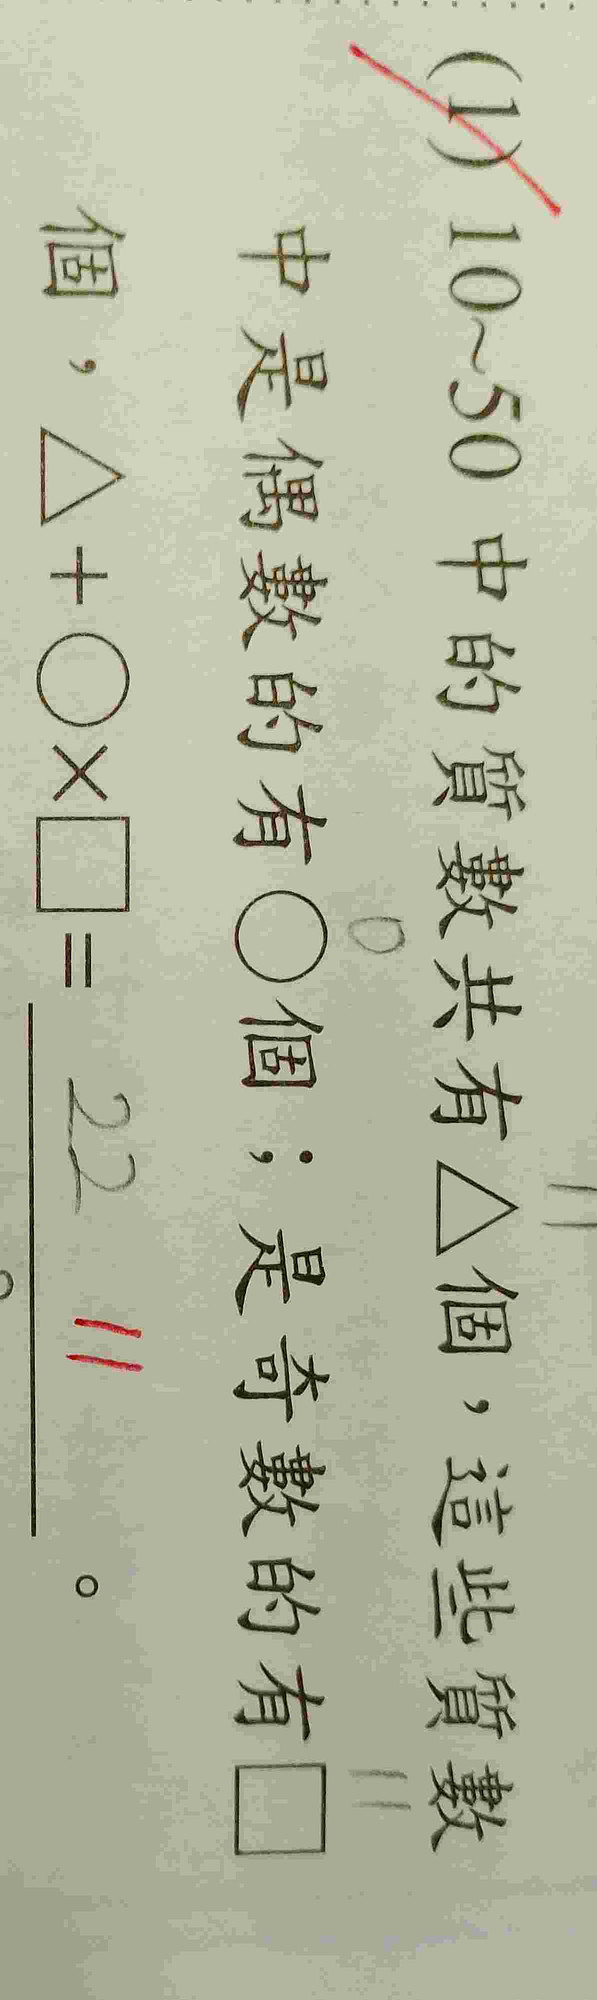 (1) 10~50 中的質數共有△個，這些質數
中是偶數的有○個；是奇數的有□
個，△+○×□= 22 11 。
11
0
11